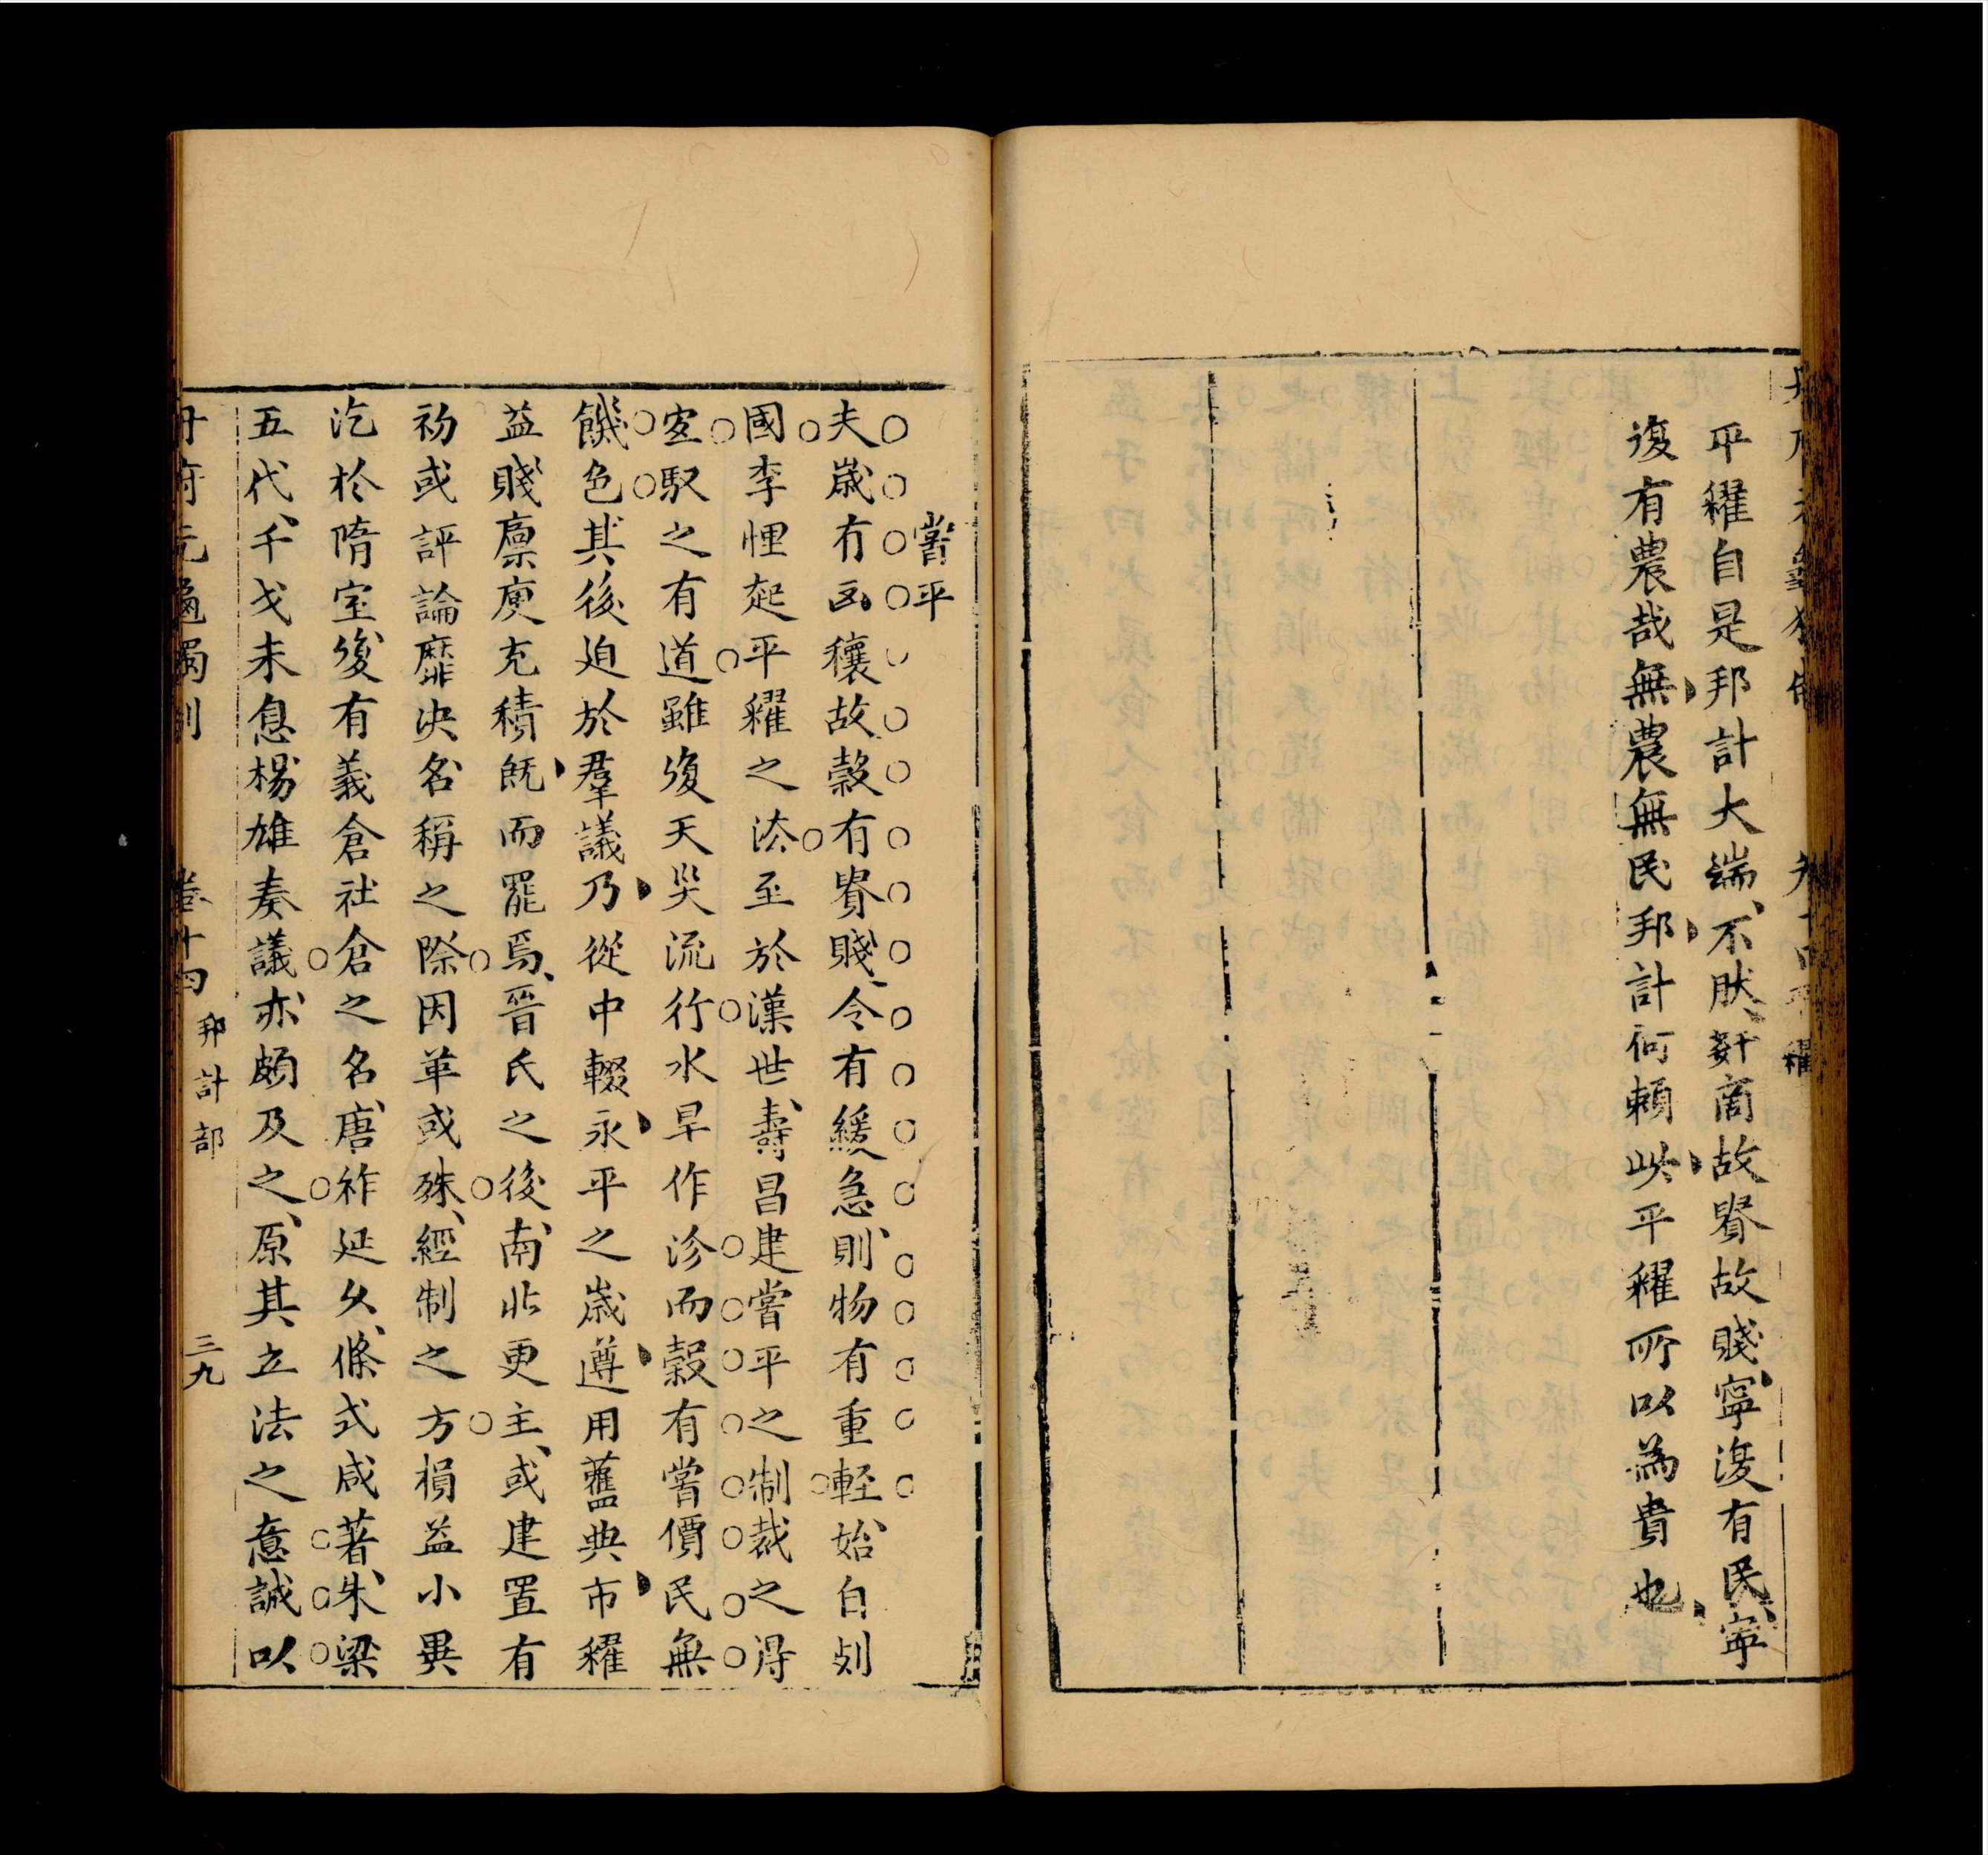 平糴自是邦計大端不然姧商故貴故賤寧復有民寧
復有農哉無農無民邦計何賴此平糴所以為貴也
嘗平
夫歲有凶穰故穀有貴賤令有緩急則物有重輕始自
國李悝起平糴之法至於漢世壽昌建嘗平之制裁之得
宐馭之有道雖復天災流行水旱作沴而穀有嘗價民無
饑色其後迫於羣議乃從中輟永平之歲遵用舊典市糴
益賤廪庾充積旣而罷焉晉氏之後南北更主或建置有
初或評論靡決名稱之際因革或殊經制之方損益小異
汔於隋室復有義倉社倉之名唐祚延久條式咸著朱梁
五代干戈未息楊雄奏議亦頗及之原其立法之意誠以
卷十四
邦計部
三九